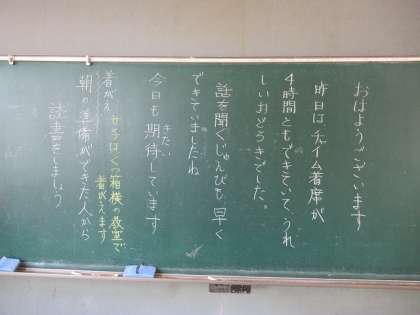 おはようございます
昨日はチャイム着席が
4時間ともできていて、うれ
しいおどろきでした。
話を聞くじゅんびも早く
できていましたね
今日も期待しています
きたい
着がえ
女子はくつ箱横の教室で
着がえます
朝の準備ができた人から
読書をしましょう